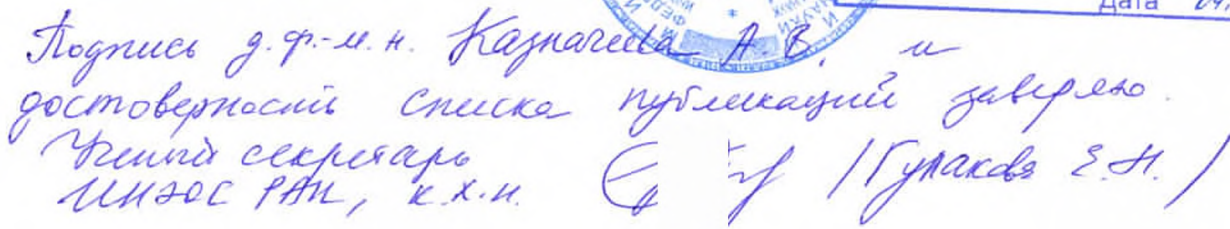 Дата 04.
Подпись д.ф.-м.н. Казначеева А.В. и
достоверность списка публикаций заверяю.
Ученый секретарь
ИНЭОС РАН, к.х.н. /Гулакова Е.Н./